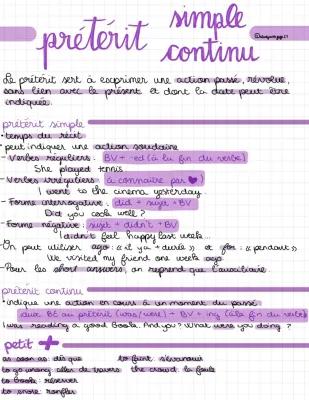 prétérit simple continu
Le prétérit sert à exprimer une action passé, révolue,
sans lien avec le présent et dont la date peut être
indiquée.
prétérit simple
• temps du récit
• peut indiquer une action soudaine
- Verbes réguliers : BV + -ed (à la fin du verbe)
She played tennis
- Verbes irréguliers (à connaître par ♥)
I went to the cinema yesterday
- Forme interrogative : did + sujet + BV
Did you cook well ?
- Forme négative : sujet + didn't + BV
I didn't feel happy last week
- On peut utiliser ago : « il y a + durée » et for : « pendant »
We visited my friend one week ago
- Pour les short answers, on reprend que l'auxiliaire.
prétérit continu
• indique une action en cours à un moment du passé
aux BE au prétérit (was/were) + BV + ing (à la fin du verbe)
I was reading a good book. And you? What were you doing ?
petit +
as soon as : dès que
to faint : s'évanouir
to go wrong : aller de travers
the crowd : la foule
to book : réserver
to snore : ronfler